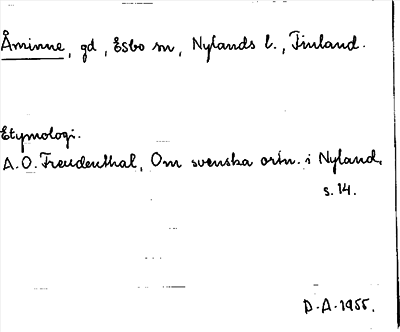 Åminne, gd, Esbo sn, Nylands l., Finland.
Etymologi.
A.O. Freudenthal, Om svenska ortn. i Nyland,
s. 14.
D.A. 1955.